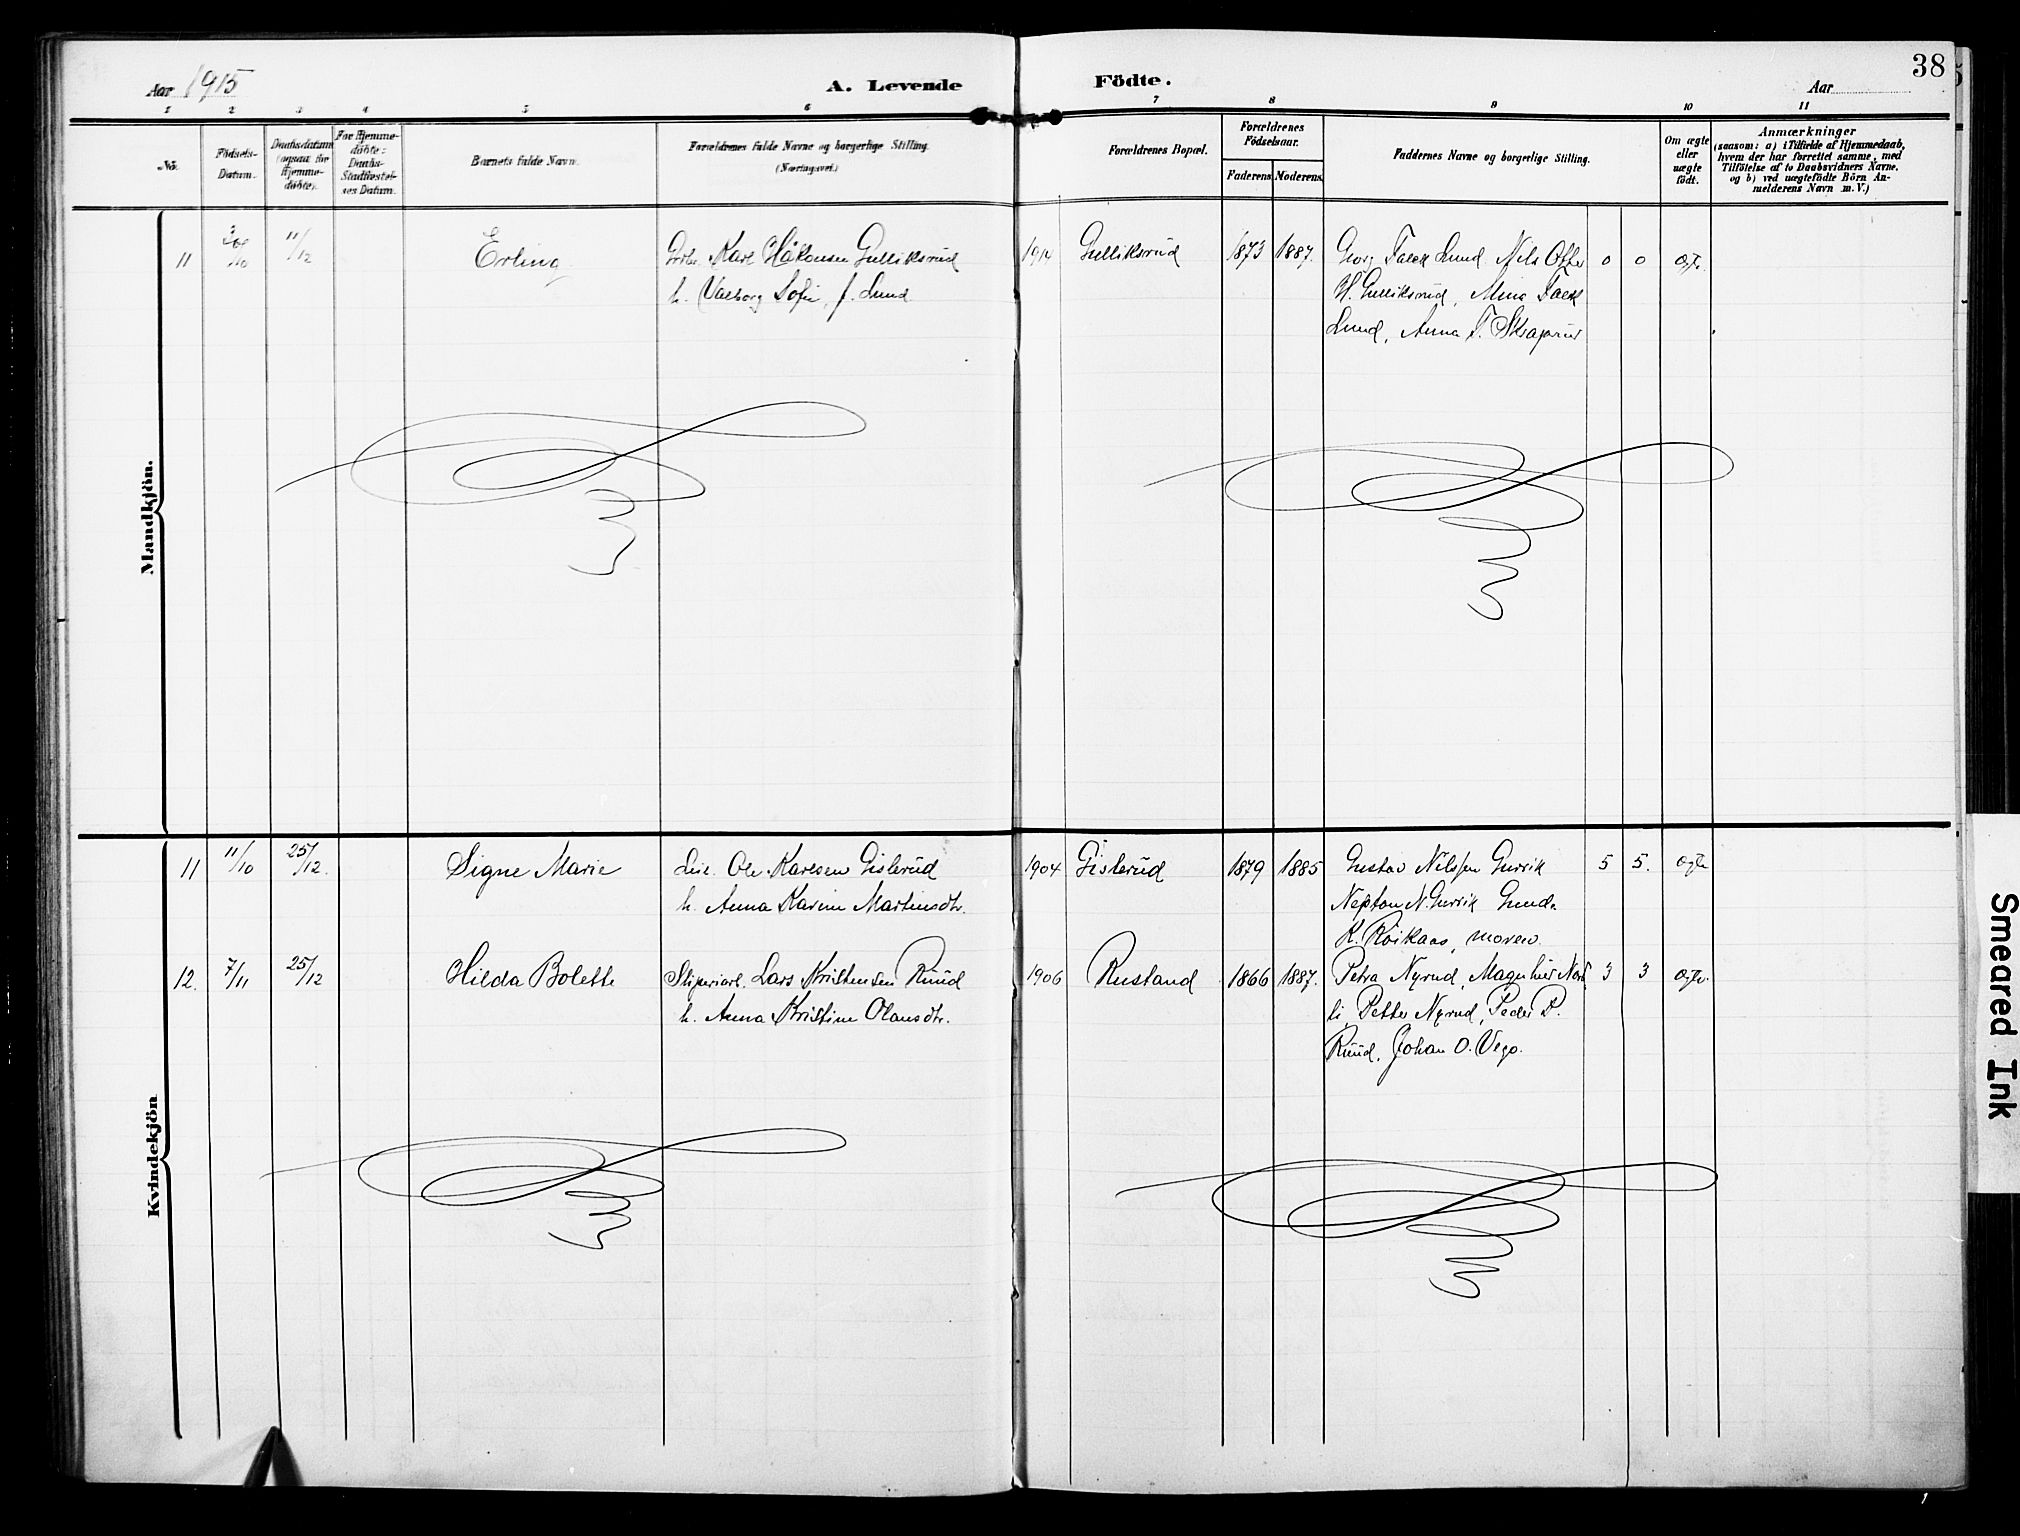 38
Aar 1915
A. Levende
Födte.
Aar
1 2 3 4 5 6 7 8 9 10 11
No.
Födsels-
Datum.
Daabsdatum
(ogsaa for
Hjemme-
döbte).
For Hjemme-
döbte:
Daabs-
Stadfæstel-
ses Datum.
Barnets fulde Navn.
Forældrenes fulde Navne og borgerlige Stilling.
(Næringsvei.)
Forældrenes Bopæl.
Forældrenes
Födselsaar.
Faderens Moderens.
Faddernes Navne og borgerlige Stilling.
Om ægte
eller
uægte
födt.
Anmærkninger
(saasom: a) i Tilfælde af Hjemmedaab,
hvem der har forrettet samme, med
Tilföielse af to Daabsvidners Navne,
og b) ved uægtefödte Börn An-
melderens Navn m. V.)
Mandkjön.
11 11/12 Erling Karl Håkonsen Gulliksrud 1914 Gulliksrud 1873 1887. Georg Falck Lund Nils 0 0
h. Valborg Sofie f. Lund H. Gulliksrud, Mina Falck
Lund, Anna T.
Kvindekjön
11 11/10 25/12 Signe Marie Ole Karlsen Gislerud 1904 Gislerud 1879 1885 Gustav Nilssen 5 5. Ægte
h. Anna Karine Martinsdtr. N.
K. Röikaas, moren.
12. 7/11 25/12 Hilda Bolette Lars Kristensen Ruud 1906 Rustand 1866 1887. Petra Nyrud, 3 3
h. Anna Kristine Olausdtr. li Petter Nyrud, Peder P.
Ruud, Johan O. Vego.
Smeared Ink